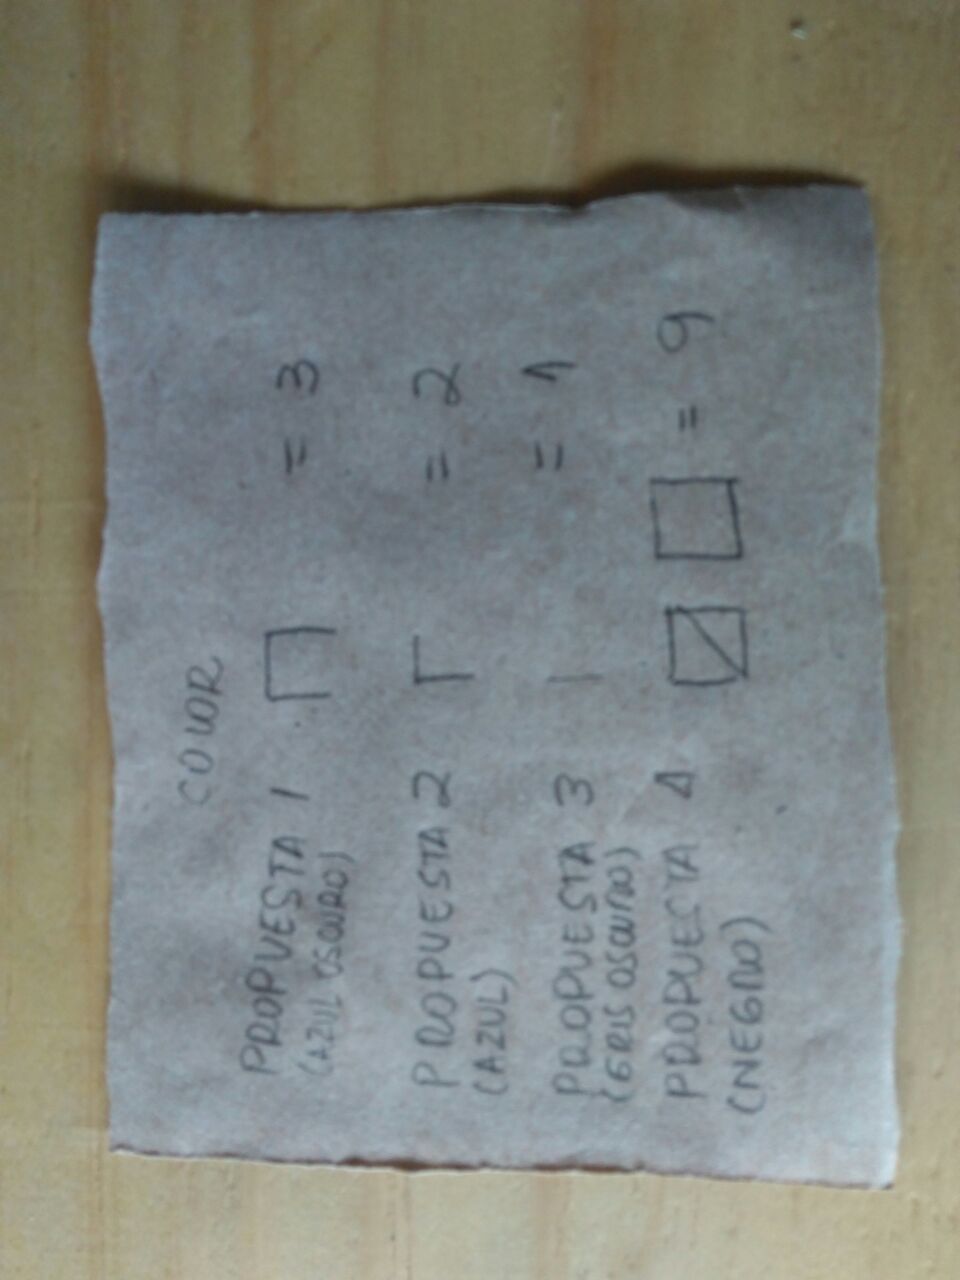 COLOR
PROPUESTA 1 = 3
(AZUL OSCURO)
PROPUESTA 2 = 2
(AZUL)
PROPUESTA 3 = 1
(GRIS OSCURO)
PROPUESTA 4 = 9
(NEGRO)